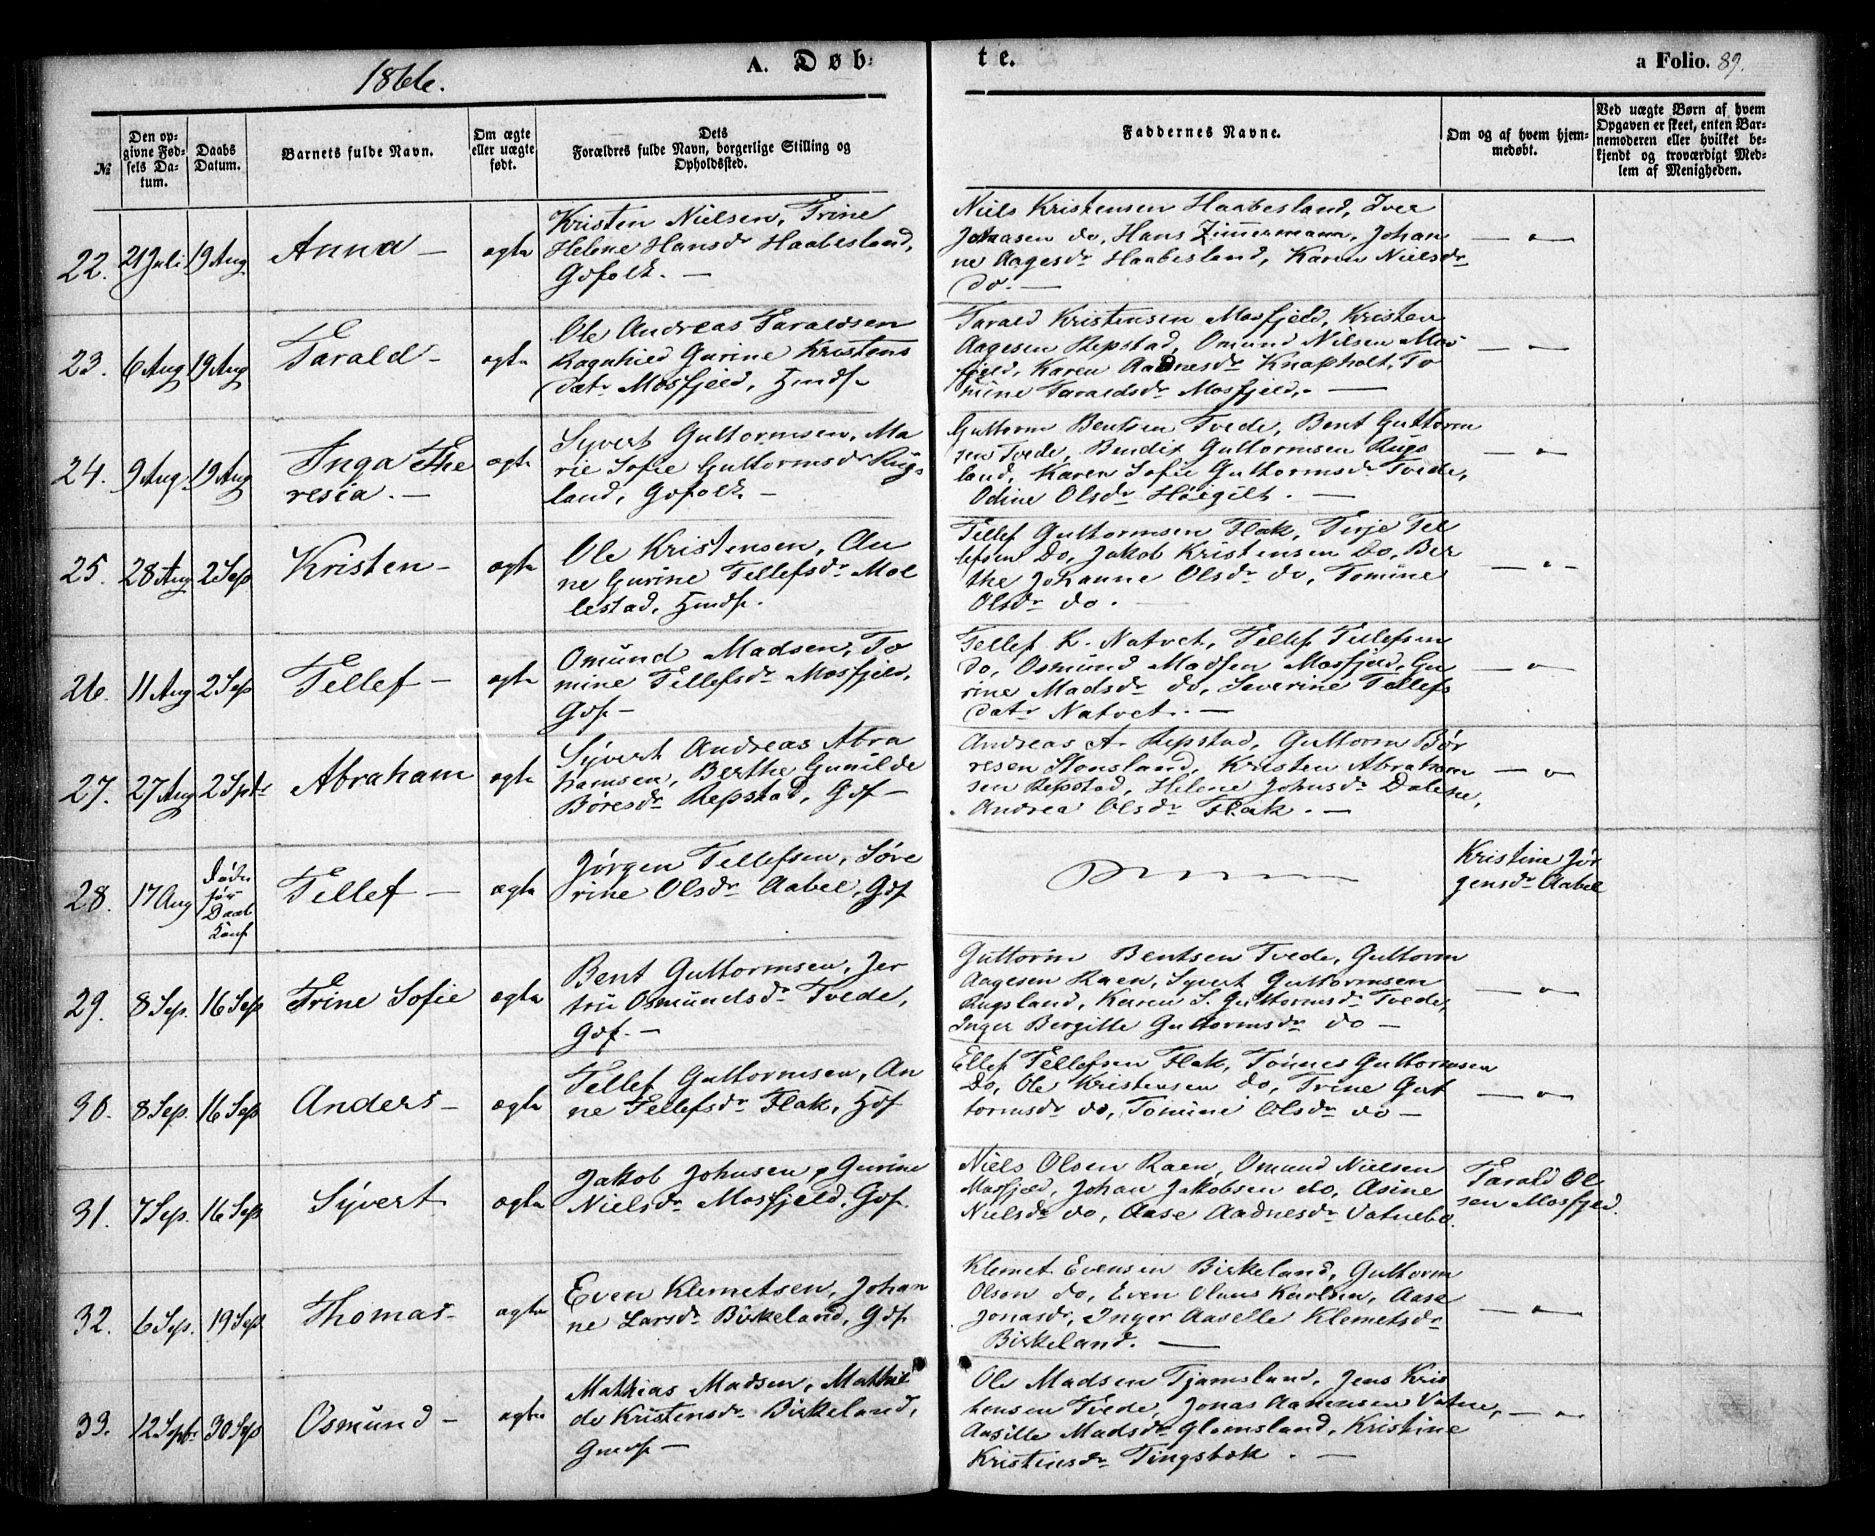 1866.
A. Døb-
te.
a Folio. 89.
№
Den op-
givne Fød-
sels Da-
tum.
Daabs
Datum.
Barnets fulde Navn.
Om ægte
eller uægte
født.
Dets
Forældres fulde Navn, borgerlige Stilling og
Opholdssted.
Faddernes Navne.
Om og af hvem hjem-
medøbt.
Ved uægte Børn af hvem
Opgaven er skeet, enten Bar-
nemoderen eller hvilket be-
kjendt og troværdigt Med-
lem af Menigheden.
22. 21 Juli 19 Aug Anna — ægte
Kristen Nielsen, Trine
Helene Hansdr Haabesland,
Gdfolk. —
Niels Kristensen Haabesland, Iver
Johnasen do, Hans Zimermann, Johan
ne Aagesdr Haabesland, Karen Nielsdr
do. —
23. 6 Aug 19 Aug Tarald — ægte
Ole Andreas Taraldsen
Ragnhild Gurine Kristens
datr Mosfjeld, Hmdf.
Tarald Kristensen Mosfjeld, Kristen
Aagesen Repstad, Omund Nilsen Mos
fjeld, Karen Aadnesdr Knapholt, To
mine Taraldsdr Mosfjeld. —
24. 9 Aug. 19 Aug Inga The
resia. — ægte
Syvert Guttormsen, Ma
rie Sofie Guttormsdr Rugs
land, Gdfolk —
Guttorm Bentsen Tvede, Bent Guttorm
sen Tvede, Bendix Guttormsen Rugs
land, Karen Sofie Guttormsdr Tvede,
Odine Olsdr Høigilt. —
25. 28 Aug 2 Sep Kristen — ægte
Ole Kristensen, An
ne Gurine Tellefsdr Mol
lestad, Hmdf.
Tellef Guttormsen Flak, Terje Tel
lefsen Do, Jakob Kristensen Do, Ber
the Johanne Olsdr do, Tomine
Olsdr do.
26. 11 Aug 2 Sep Tellef — ægte
Omund Madsen, To
mine Tellefsdr Mosfjeld,
Gdf —
Tellef K. Natvet, Tellef Tellefsen
do, Osmund Madsen Mosfjeld, Gu
rine Madsdr do, Severine Tellefs
datr Natvet. —
27. 27 Aug 2 Sptr Abraham ægte
Syvert Andreas Abra
hamsen, Berthe Gunilde
Børesdr Repstad, Gdf —
Andreas A. Repstad, Guttorm Bør
resen Stensland, Kristen Abraham
sen Repstad, Helene Johnsdr Dalene,
Andrea Olsdr Flak. —
28. 17 Aug Døde
før
Daab
Tellef — ægte
Jørgen Tellefsen, Søve
rine Olsdr Aabel, Gdf
Kristine Jør
gensdr Aabel
29. 8 Sep. 16 Sep Trine Sofie ægte
Bent Guttormsen, Jer
tru Osmundsdr Tvede,
Gdf. —
Guttorm Bentsen Tvede, Guttorm
Aagesen Raen, Syvert Guttormsen
Rugsland, Karen S. Guttormsdr Tvede,
Inger Bergitte Guttormsdr do —
30. 8 Sep. 16 Sep Anders — ægte
Tellef Guttormsen, An
ne Tellefsdr Flak, Hdf
Ellef Tellefsen Flak, Tønnes Guttormsen
Do, Ole Kristensen do, Trine Gut
tormsdr do, Tomine Olsdr do —
31. 7 Sep. 16 Sep Syvert ægte
Jakob Johnsen, Gurine
Nielsdr Mosfjeld, Gdf.
Niels Olsen Raen, Omund Nielsen
Mosfjeld, Johan Jakobsen do, Asine
Nielsdr do, Aase Aadnesdr Vatnebo.
Tarald Ol
sen Mosfjeld.
32. 6 Sep. 19 Sep Thomas — ægte
Even Klemetsen, Johan
ne Larsdr Birkeland, Gdf
Klemet Evensen Birkeland, Guttorm
Olson do, Even Olaus Karlsen, Aasa
Jonasdr, Inger Aaselle Klemetsdr
Birkeland. —
33. 12 Septr 30 Sep Osmund — ægte
Mathias Madsen, Mathil
de Kristensdr Birkeland,
Gmdf —
Ole Madsen Tjamsland, Jens Kris
tensen Tvede, Jonas Aanensen Vatne,
Aasille Madsdr Glamsland, Kristine
Kristensdr Tingsbæk. —